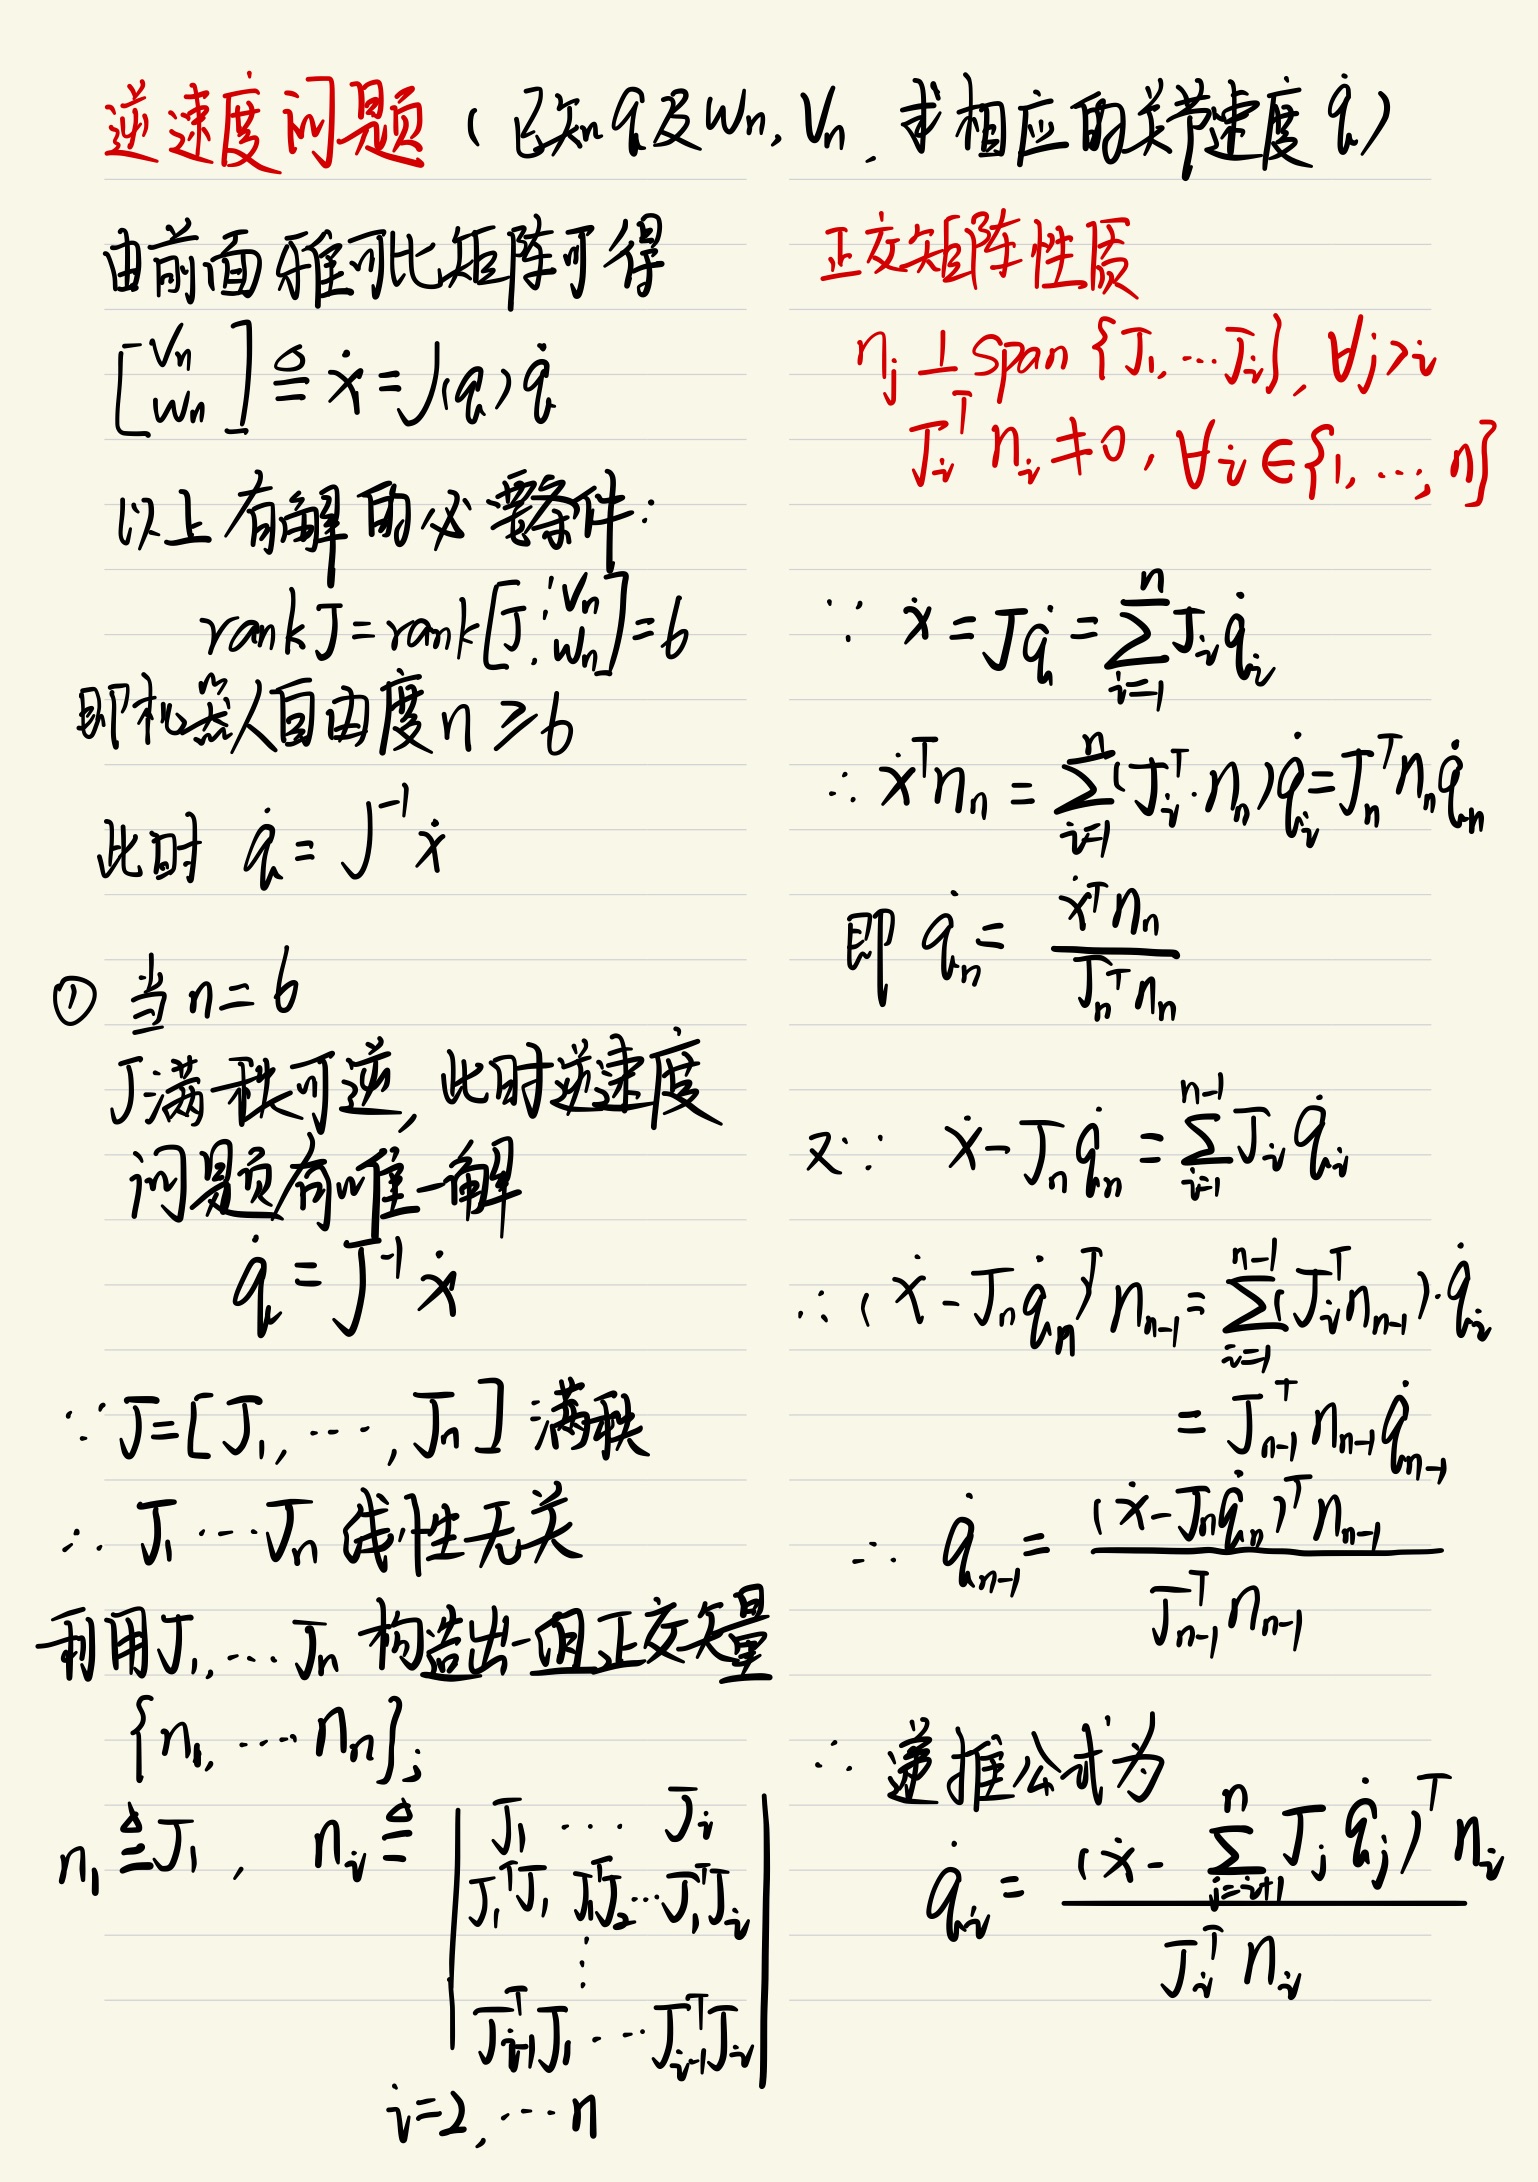 逆速度问题（已知q及ωn, Vn, 求相应的关节速度 q̇）
由前面雅可比矩阵可得
[Vn ωn] ≜ ẋ = J(q) q̇
以上有解的必要条件:
rank J = rank[J, Vn ωn] = 6
即机器人自由度 n ≥ 6
此时 q̇ = J⁻¹ ẋ
① 当 n = 6
J满秩可逆, 此时逆速度
问题有唯一解
q̇ = J⁻¹ ẋ
∵ J = [J₁, ⋯, Jn] 满秩
∴ J₁ ⋯ Jn 线性无关
利用J₁, ⋯ Jn 构造出一组正交矢量
{n₁, ⋯ nn};
n₁ ≜ J₁, nᵢ ≜
| J₁ ⋯ Jᵢ |
| J₁ᵀJ₁ J₁ᵀJ₂ ⋯ J₁ᵀJᵢ |
⋮
| Jᵢ₋₁ᵀJ₁ ⋯ Jᵢ₋₁ᵀJᵢ |
i = 2, ⋯ n
正交矩阵性质
nⱼ ⊥ span {J₁, ⋯ Jᵢ}, ∀j > i
Jᵢᵀ nᵢ ≠ 0, ∀i ∈ {1, ⋯, n}
∵ ẋ = Jq̇ = Σᵢ₌₁ⁿ Jᵢ q̇ᵢ
∴ ẋᵀnn = Σᵢ₌₁ⁿ (Jᵢᵀ · nn) q̇ᵢ = Jnᵀ nn q̇n
即 q̇n = ẋᵀ nn / Jnᵀ nn
又∵ ẋ - Jn q̇n = Σᵢ₌₁ⁿ⁻¹ Jᵢ q̇ᵢ
∴ (ẋ - Jn q̇n)ᵀ nn₋₁ = Σᵢ₌₁ⁿ⁻¹ (Jᵢᵀ nn₋₁) · q̇ᵢ
= Jn₋₁ᵀ nn₋₁ q̇n₋₁
∴ q̇n₋₁ = (ẋ - Jn q̇n)ᵀ nn₋₁ / Jn₋₁ᵀ nn₋₁
∴ 递推公式为
q̇ᵢ = (ẋ - Σⱼ₌ᵢ₊₁ⁿ Jⱼ q̇ⱼ)ᵀ nᵢ / Jᵢᵀ nᵢ